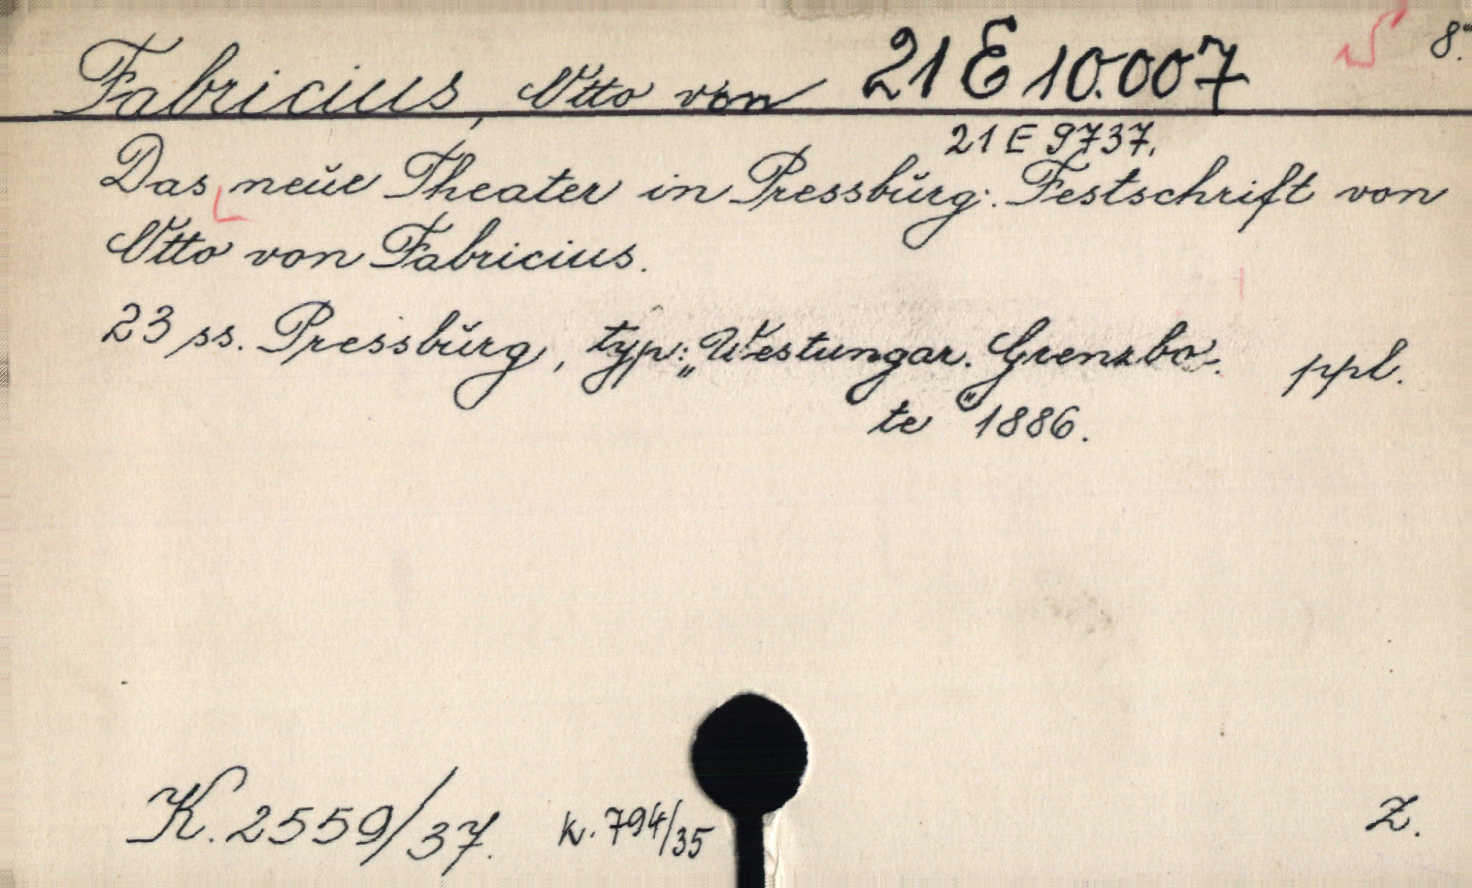 Fabricius, Otto von 21 E 10.007 8°.
21 E 9737.
Das neue Theater in Pressburg. Festschrift von
Otto von Fabricius.
23 ss. Pressburg, typ: „Westungar. Grenzbo- ppl.
te" 1886.
K. 2559/37. K. 794/35 Z.